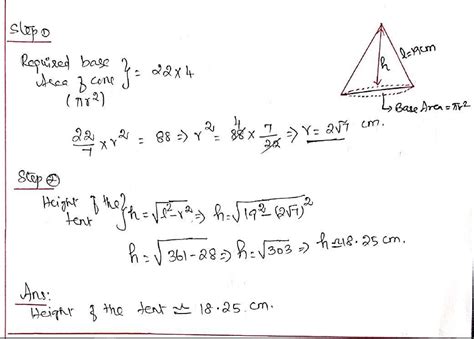 Step ①
Required base
Area of cone } = 22 × 4
(πr²)
h
l=19cm
Base Area = πr²
22/7 × r² = 88 => r² = 88 4 × 7/22 => r = 2√7 cm.
Step ②
Height of the
tent } h = √l²-r² => h = √19² - (2√7)²
h = √361-28 => h = √303 => h ≃ 18.25 cm.
Ans:
Height of the tent ≃ 18.25 cm.